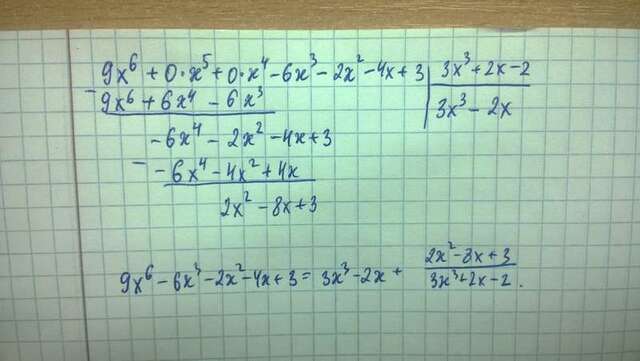 9x⁶ + 0·x⁵ + 0·x⁴ - 6x³ - 2x² - 4x + 3 | 3x³ + 2x - 2
- 9x⁶ + 6x⁴ - 6x³ | 3x³ - 2x
-6x⁴ - 2x² - 4x + 3
- -6x⁴ - 4x² + 4x
2x² - 8x + 3
9x⁶ - 6x³ - 2x² - 4x + 3 = 3x³ - 2x + (2x² - 8x + 3)/(3x³ + 2x - 2).